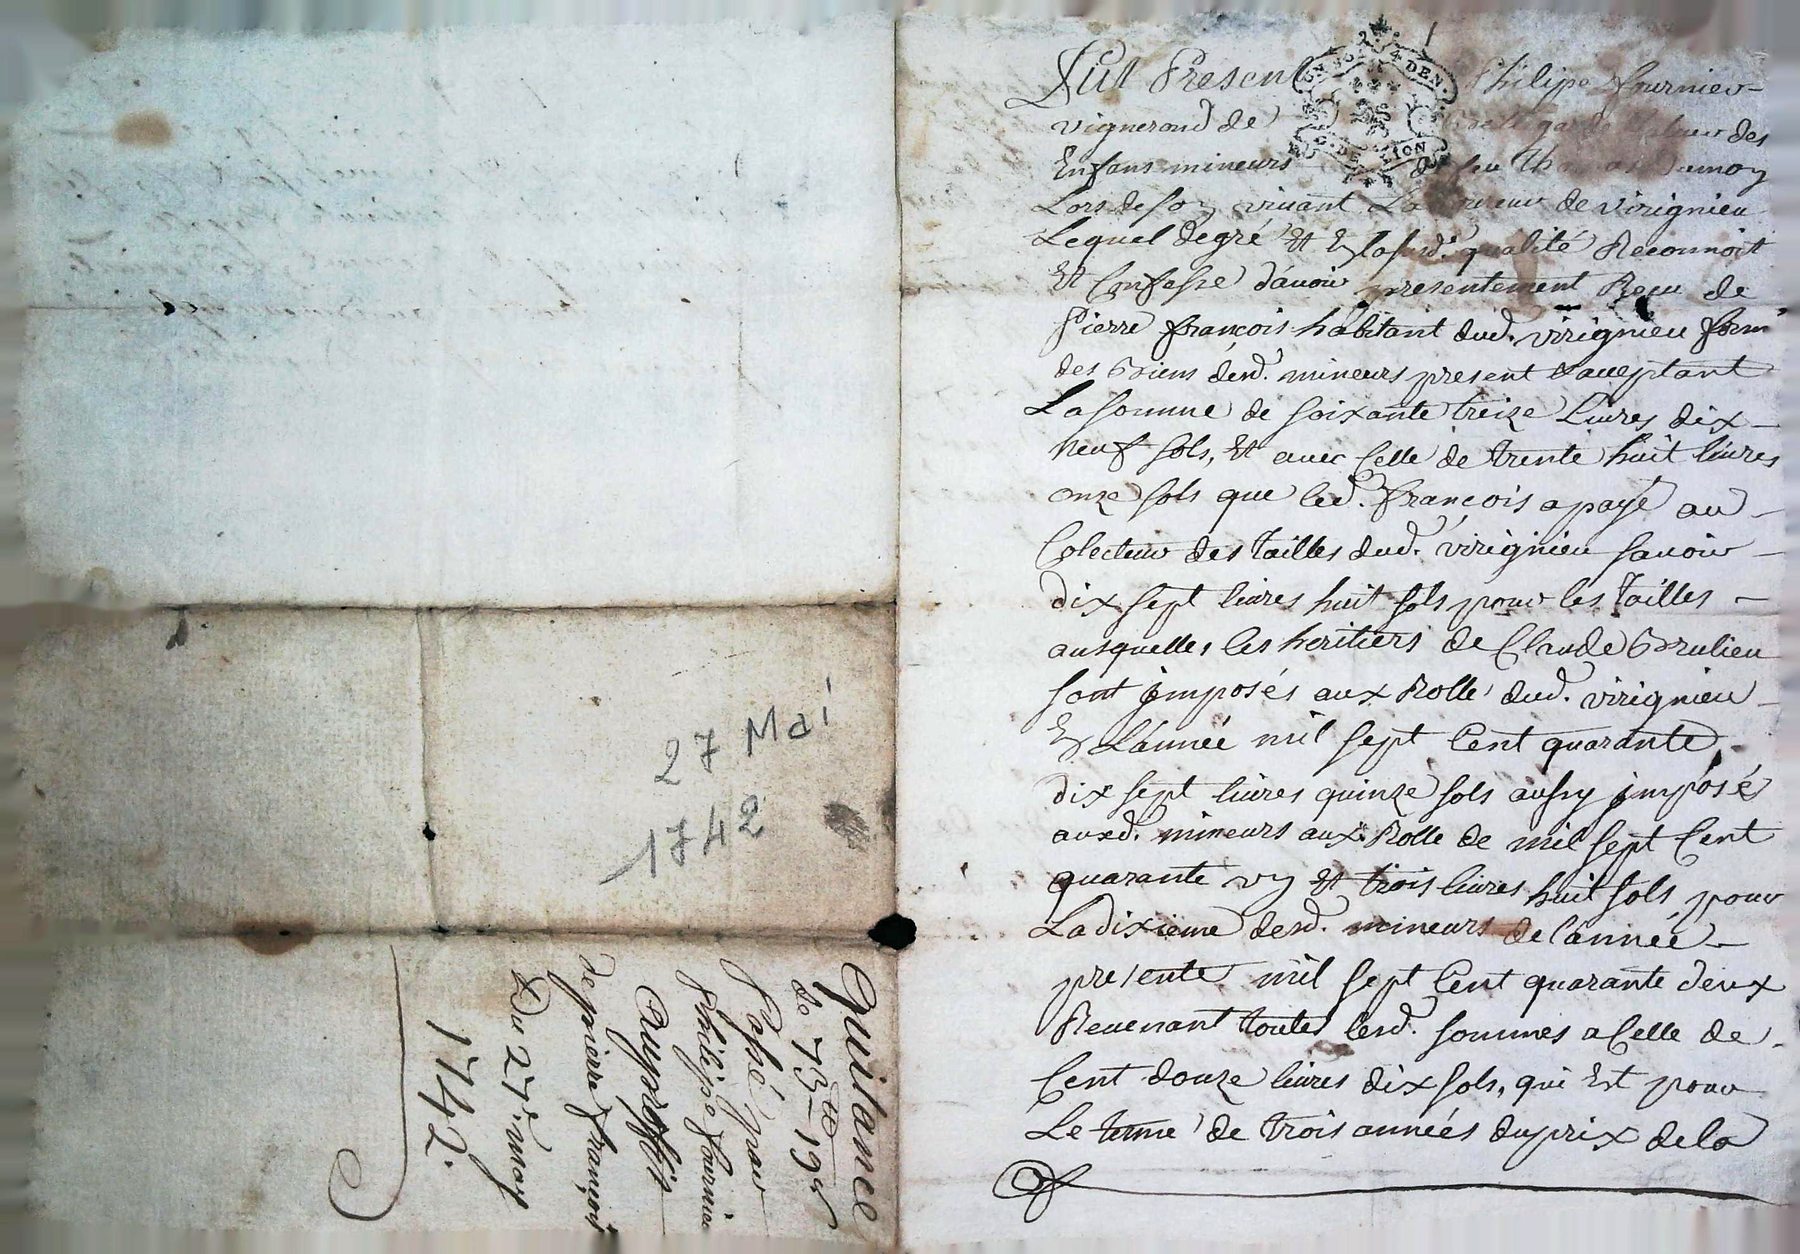 27 Mai
1742
Quitance
de 73ˡᵗ 19 s
Passé par
Philipe fournier
Au proffit
de pierre françois
Du 27ᵉ may
1742.
Fut Present Philipe fournier
vigneron de des
Enfans mineurs de feu Thomas
Lors de son vivant Laboureur de virignieu
Lequel de gré Et En lasusd. qualité Reconnoit
Et Confesse d'avoir presentement Reçu de
Pierre françois habitant dud. virignieu ferm
des Biens desd. mineurs present & acceptant
La somme de soixante treize livres dix
neuf sols, Et avec Celle de trente huit livres
onze sols que led. françois a payé au
Colecteur des tailles dud. virignieu savoir
dix sept livres huit sols pour les Tailles
ausquelles les heritiers de Claude Brulieu
sont jmposés aux Rolle dud. virignieu
En L'année mil sept Cent quarante,
dix sept livres quinze sols aussy jmposé
auxd. mineurs aux Rolle de mil sept Cent
quarante vn Et trois livres huit sols pour
La dixieme desd. mineurs de l'année
presente mil sept Cent quarante deux
Revenant toutes lesd. sommes a Celle de
Cent douze livres dix sols, qui Est pour
Le terme de trois années du prix de la